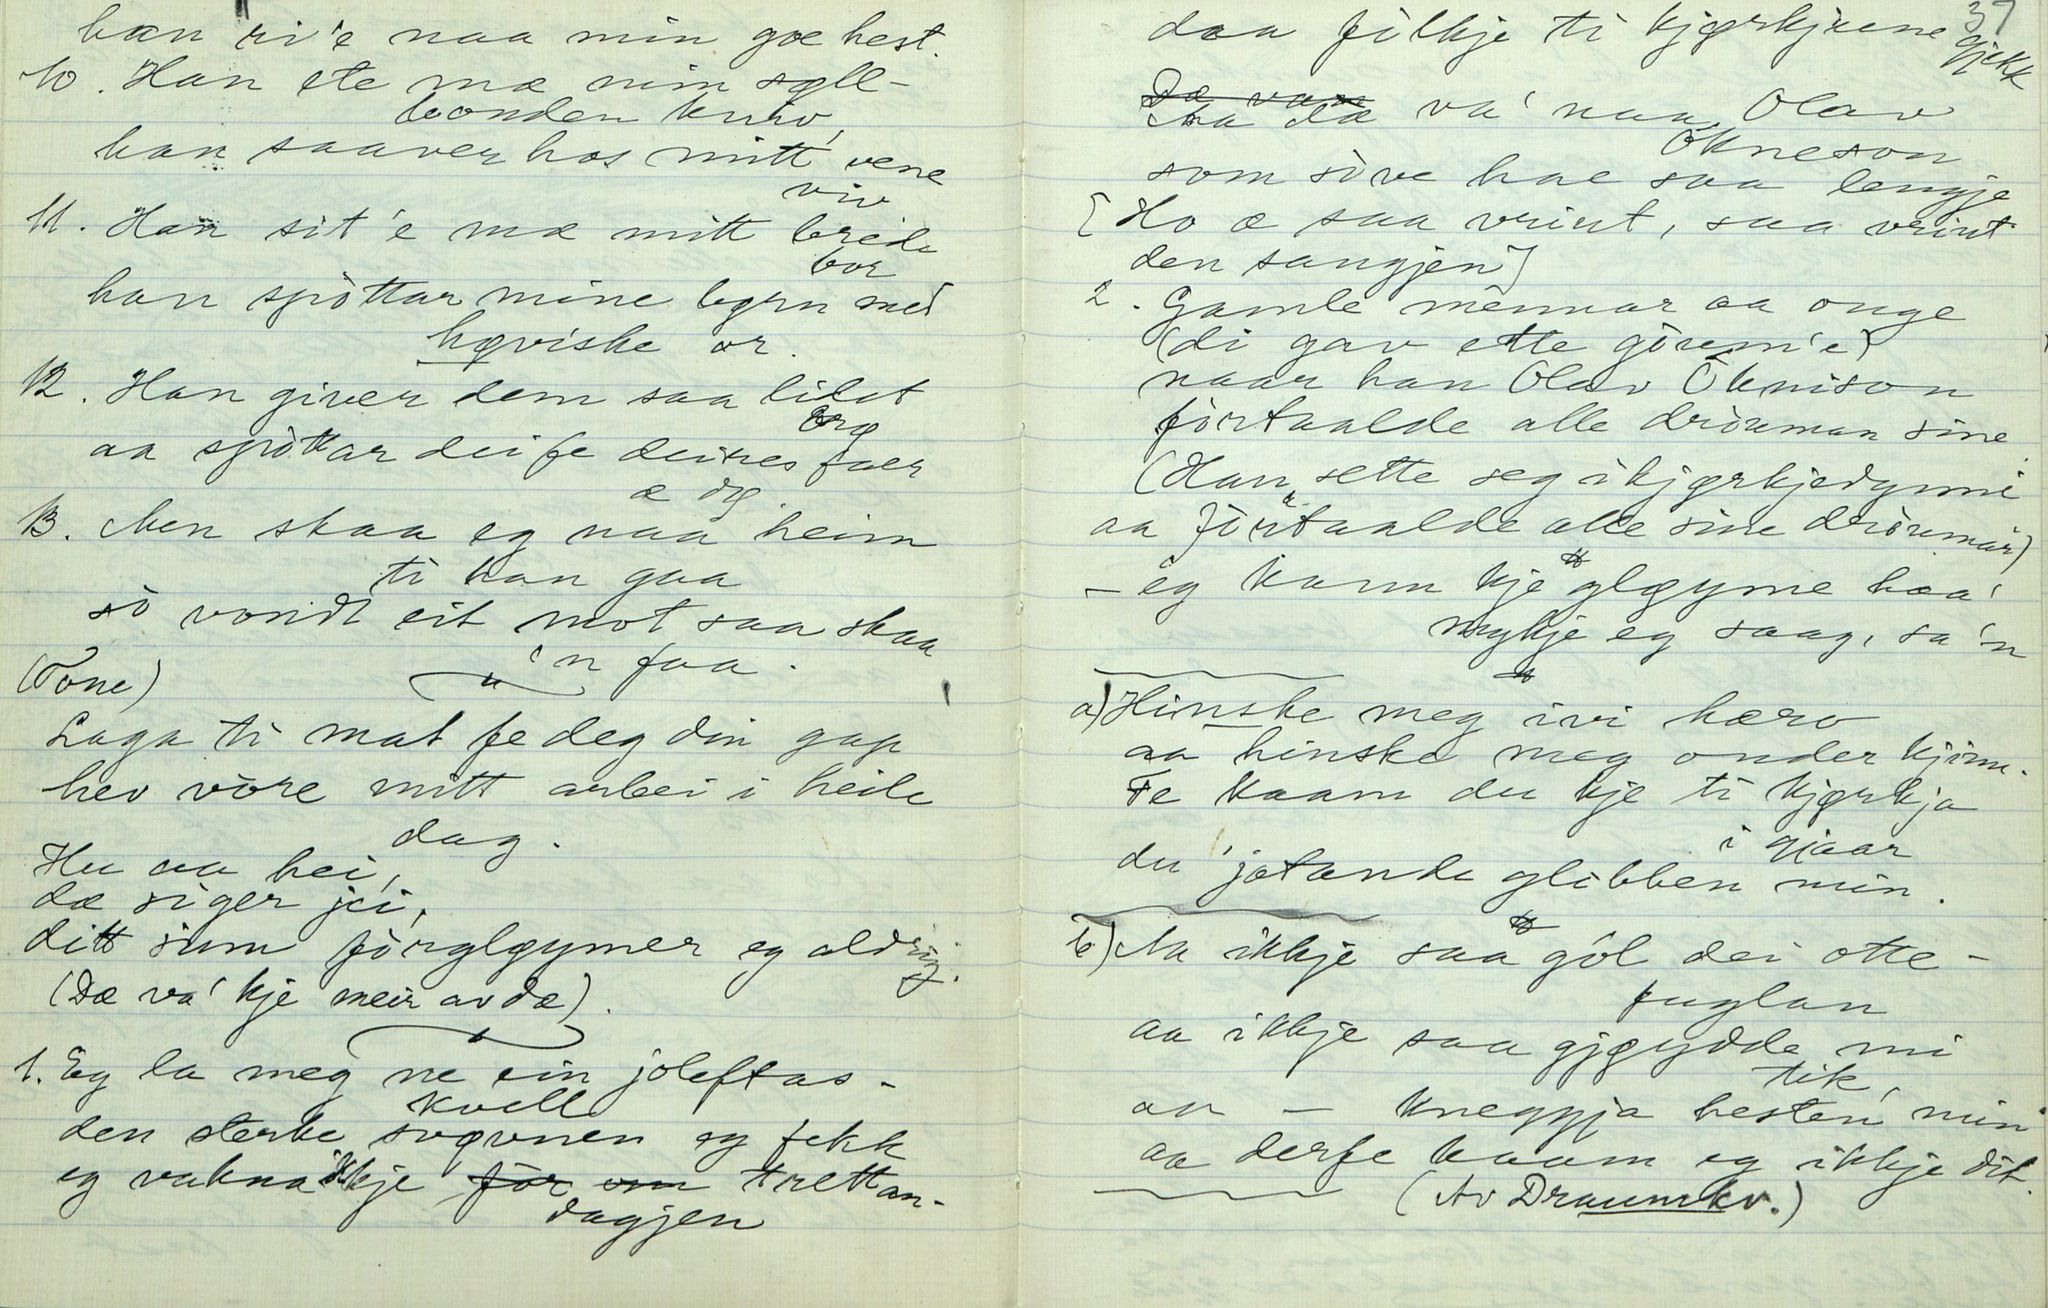 han ri'e naa min goe hest.
10. Han ete mæ min søll-
bonden kniv,
han saaver hos mitt vene
viv
11. Han sit'e mæ mitt breide
bor
han spòttar mine børn med
høviske or.
12. Han giver dem saa lidet
brø
aa spòttar dei fe deires faer
æ dø.
13. Men skaa eg naa heim
ti han gaa
sò vondt eit mot saa skaa
'n faa.
(Tone)
Laga ti mat fe deg din gap
hev vòre mitt arbei i heile
dag.
Hu aa hei,
dæ siger jei,
ditt sinn fòrgløymer eg aldrig.
(Dæ va' kje meir av dæ).
1. Eg la meg ne ein joleftas-
kvell
den sterke svøvnen eg fekk
eg vakna ikkje fòr om trettan-
dagjen
37
daa fòlkje ti kjørkjune
gjekk
Dæ var
Aa dæ va' naa Olav
Òkneson
som sòve hae saa lengje
[Ho æ saa vrint, saa vrint
den sangjen]
2. Gamle mennar aa onge
(di gav ette gòrum'e)
naar han Olav Òknison
fòrtaalde alle dròuman sine.
(Han sette seg i kjørkjedynni
aa fòrtaalde alle sine dròumar)
- eg kann kje gløyme hoa'
mykje eg saag, sa'n
a) Hinske meg ivi hærv
aa hinske meg onder kjinn.
Fe kaam du kje ti kjørkja
i gjaar
du 'jatande glibben min.
b) Aa ikkje saa gól dei otte-
fuglan
aa ikkje saa gjøydde mi
tik,
aa - kneggja hesten min
aa derfe kaam eg ikkje dit.
(Av Draumkv.)